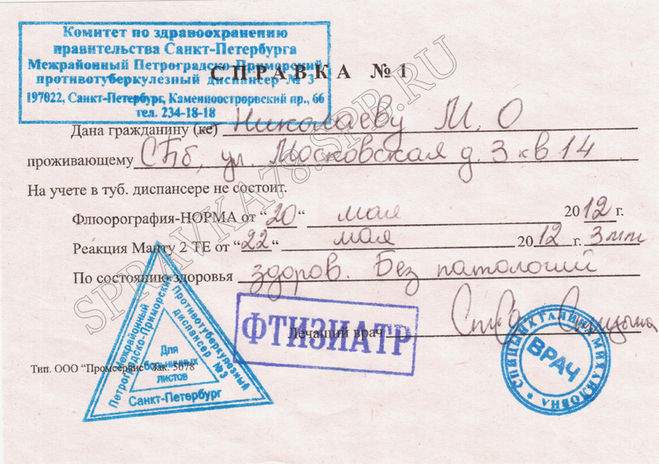 Комитет по здравоохранению
правительства Санкт-Петербурга
Межрайонный Петроградско-Приморский
противотуберкулезный диспансер № 3
197022, Санкт-Петербург, Каменноостровский пр., 66
тел. 234-18-18
СПРАВКА №1
Дана гражданину (ке) Николаеву М. О
проживающему СПб, ул. Московская д. 3 кв 14
На учете в туб. диспансере не состоит.
Флюорография-НОРМА от "20" мая 2012 г.
Реакция Манту 2 ТЕ от "22" мая 2012 г. 3мм
По состоянию здоровья здоров. Без патологий
Лечащий врач
ФТИЗИАТР
Межрайонный Петроградско-Приморский
Противотуберкулезный диспансер №3
Санкт-Петербург
Для больничных листов
ВРАЧ
МИХАЙЛОВНА
Тип. ООО "Промсервис" Зак. 5078
SPRAVKA78.SPR.RU